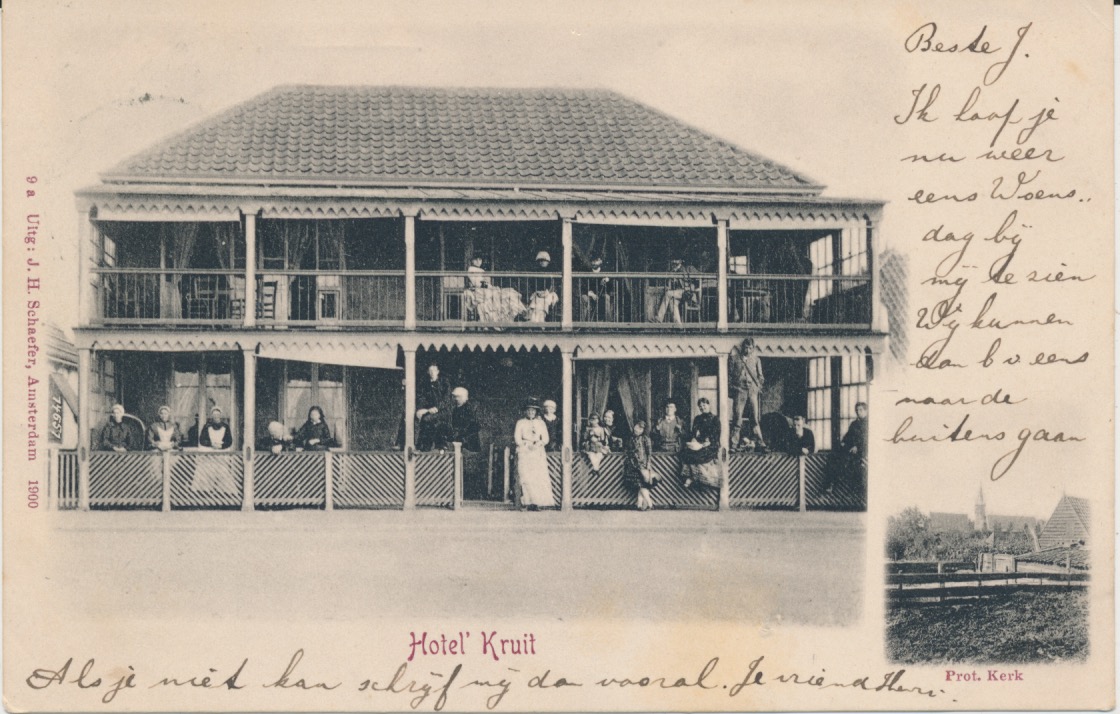 Beste J.
Ik hoop je
nu weer
eens Woens..
dag bij
mij te zien
Wij kunnen
dan b v eens
naar de
buitens gaan
9 a Uitg: J. H. Schaefer, Amsterdam 1900
74697
Hotel' Kruit
Prot. Kerk
Als je niet kan schrijf mij dan vooral. Je vriend